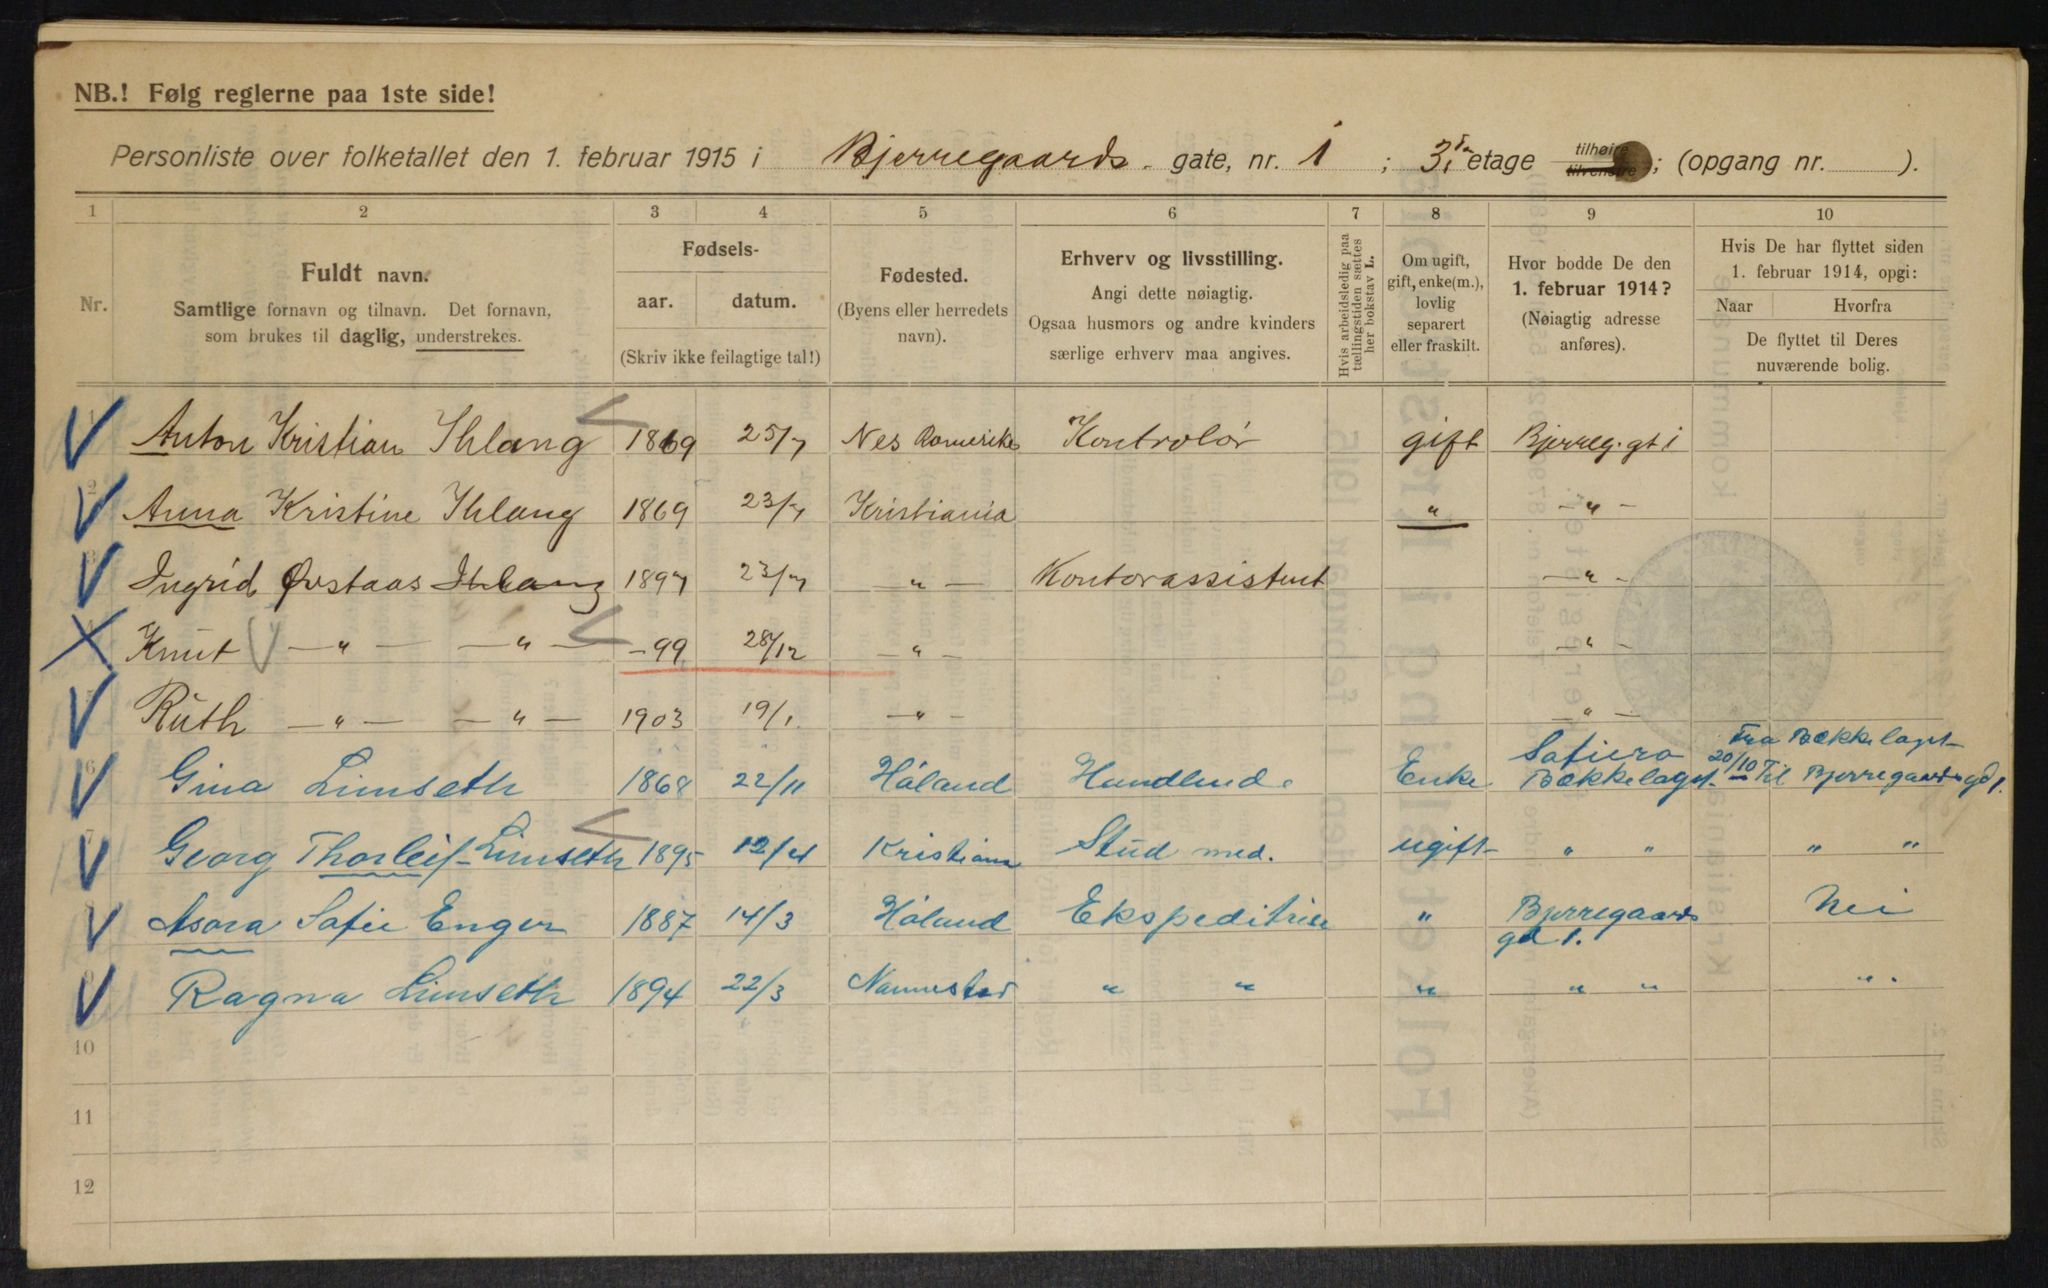 NB.! Følg reglerne paa 1ste side!
Personliste over folketallet den 1. februar 1915 i Bjerregaards gate, nr. 1 ; 3. etage tilhøire tilvenstre ; (opgang nr. ).
1 2 3 4 5 6 7 8 9 10
Nr.
Fuldt navn.
Samtlige fornavn og tilnavn. Det fornavn,
som brukes til daglig, understrekes.
Fødsels-
aar. datum.
(Skriv ikke feilagtige tal!)
Fødested.
(Byens eller herredets
navn).
Erhverv og livsstilling.
Angi dette nøiagtig.
Ogsaa husmors og andre kvinders
særlige erhverv maa angives.
Hvis arbeidsledig paa
tællingstiden sættes
her bokstav L.
Om ugift,
gift, enke(m.),
lovlig
separert
eller fraskilt.
Hvor bodde De den
1. februar 1914?
(Nøiagtig adresse
anføres).
Hvis De har flyttet siden
1. februar 1914, opgi:
Naar Hvorfra
De flyttet til Deres
nuværende bolig.
1 Anton Kristian Ihlang 1869 25/7 Nes Romerike Kontrolør gift Bjerreg. gt 1
2 Anna Kristine Ihlang 1869 23/7 Kristiania " — " —
3 Ingrid Øvstaas Ihlang 1897 23/7 — " — Kontorassistent — " —
4 Knut — " — — " — - 99 28/12 — " — — " —
5 Ruth — " — — " — 1903 19/1 — " — — " —
6 Gina Limseth 1868 22/11 Høland Handlende Enke Sofiero Bækkelaget 20/10 Fra Bækkelaget Til Bjerregaards gd 1.
7 Georg Thorleif Limseth 1895 12/4 Kristiania Stud med. ugift " " " "
8 Asora Sofie Enger 1887 14/3 Høland Ekspeditrise " Bjerregaards gd 1. Nei
9 Ragna Limseth 1894 22/3 Nannestad " " " " " " "
10
11
12